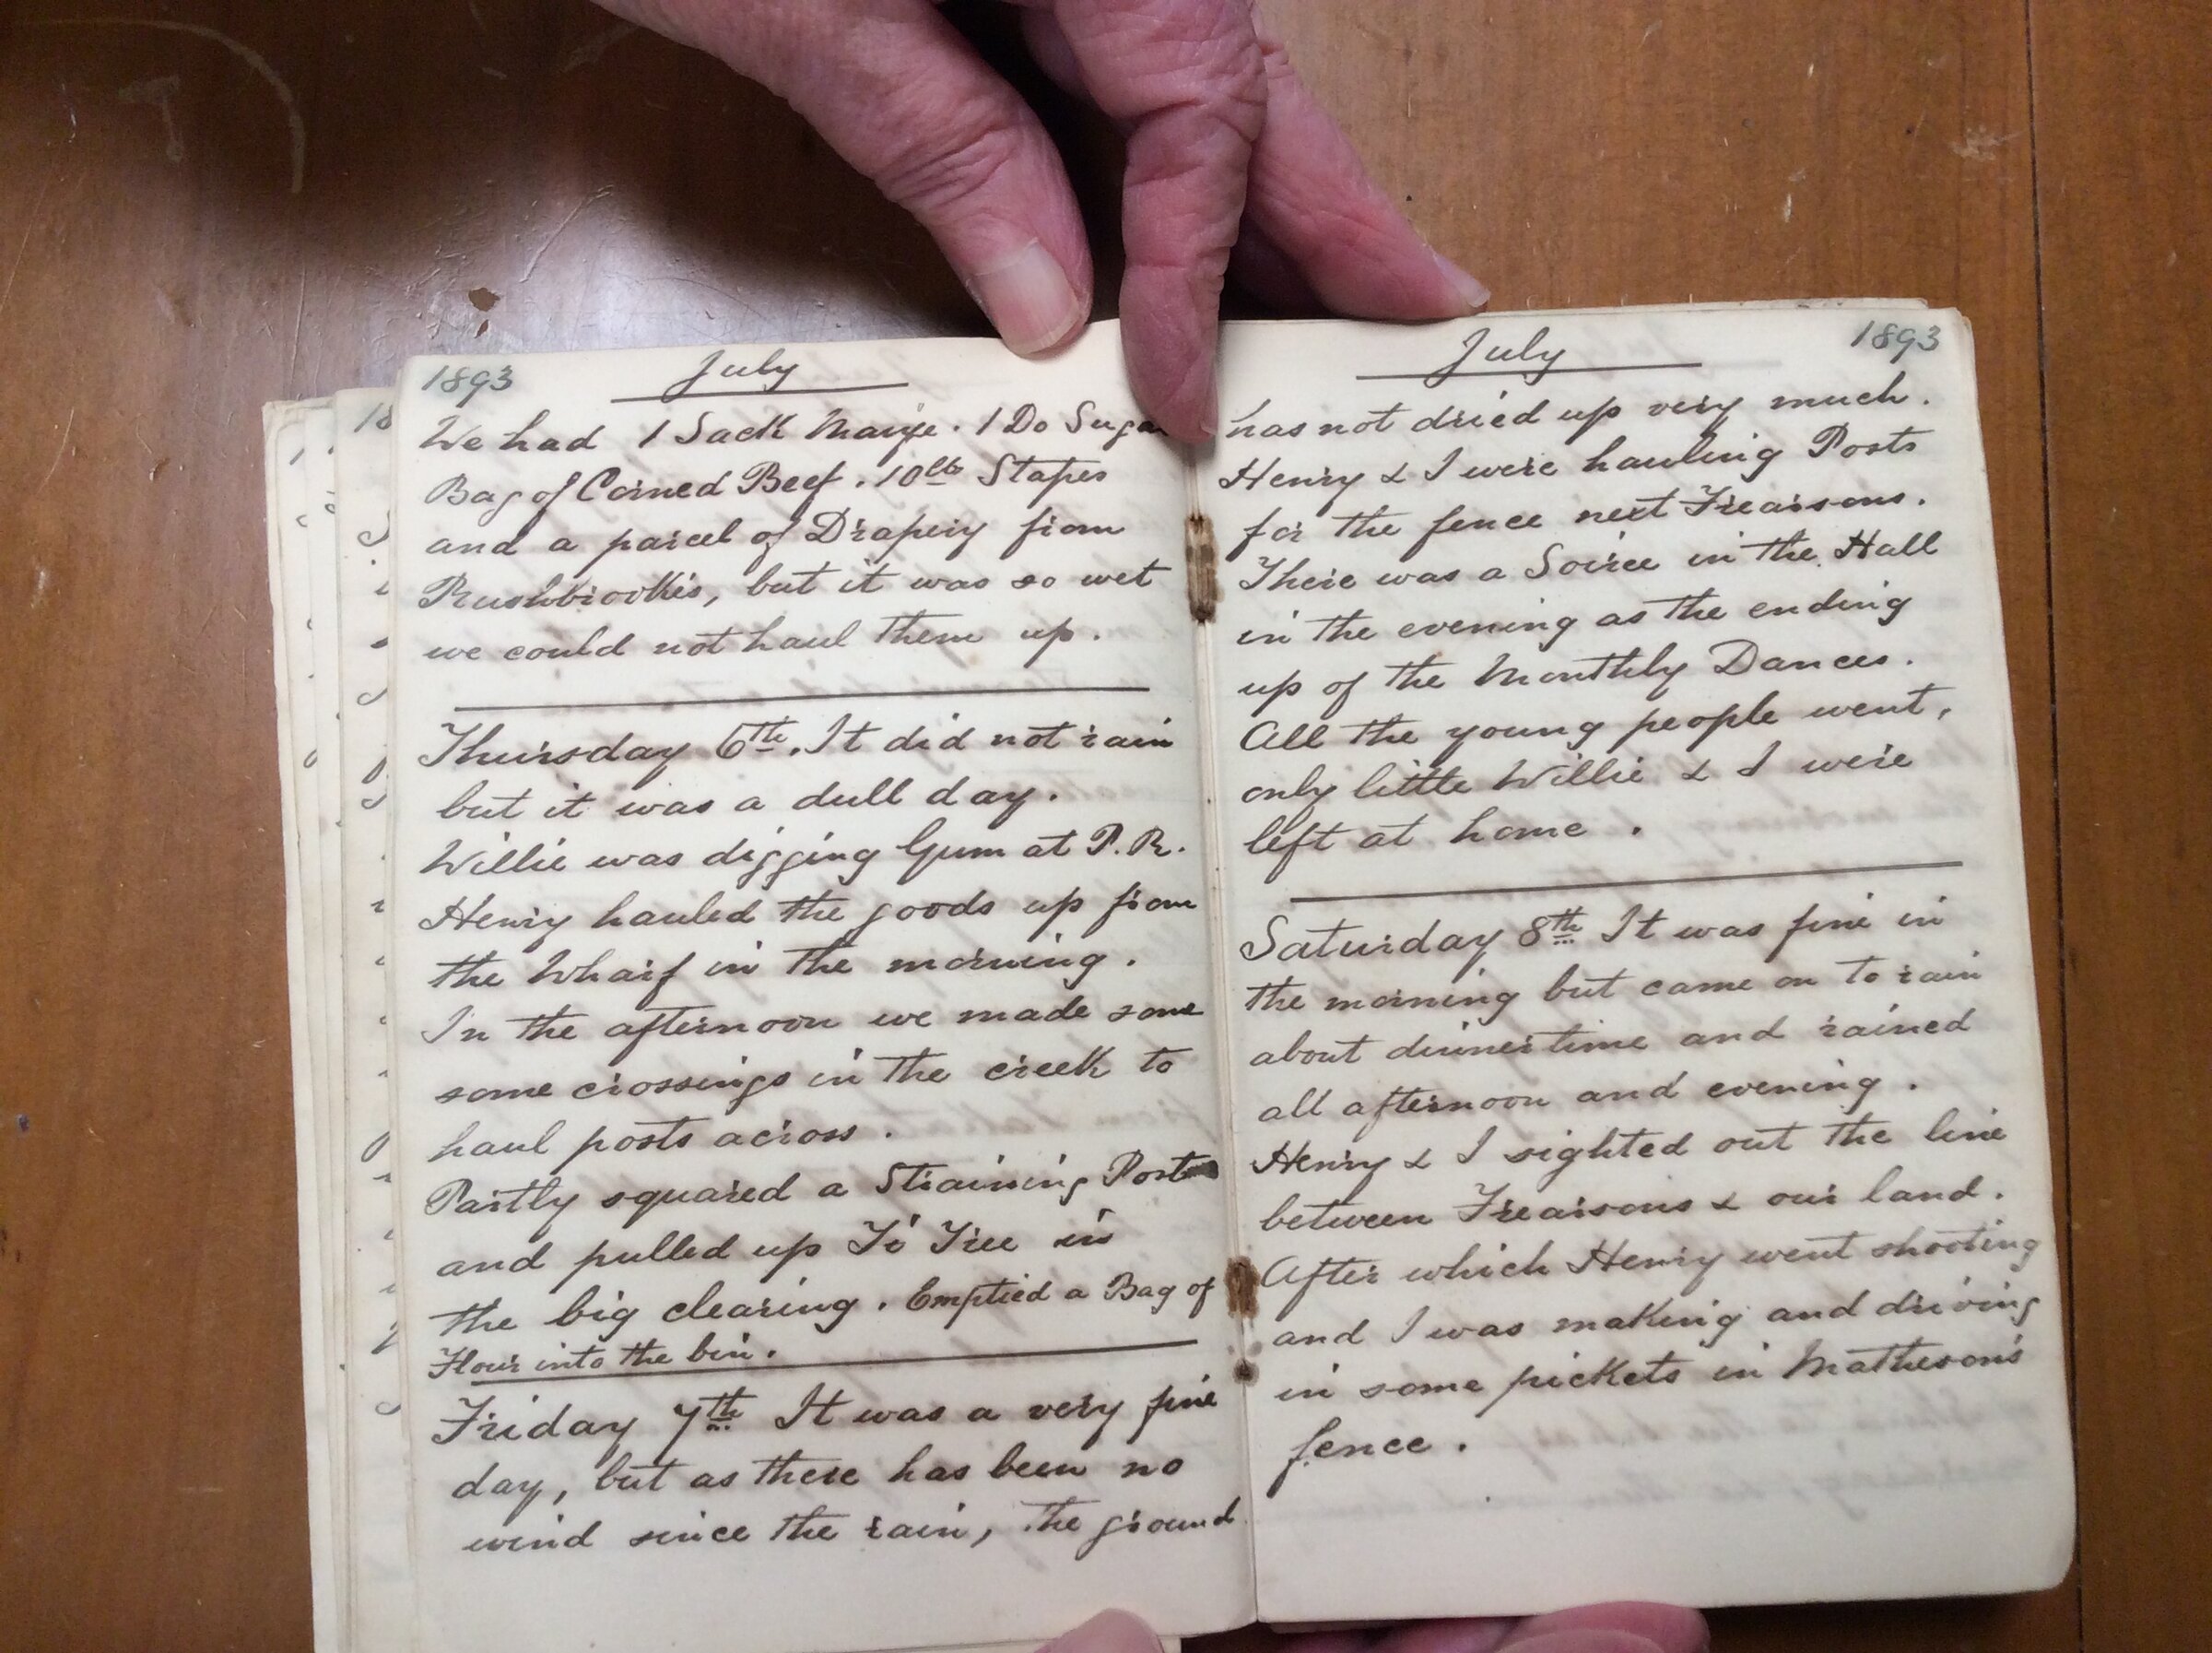 1893 July
We had 1 Sack Maize. 1 Do Sugar
Bag of Corned Beef. 10lbs Staples
and a parcel of Drapery from
Rushbrookes, but it was so wet
we could not haul them up.
Thursday 6th. It did not rain
but it was a dull day.
Willie was digging Gum at P.R.
Henry hauled the goods up from
the Wharf in the morning.
In the afternoon we made some
some crossings in the creek to
haul posts across.
Partly squared a Straining Post
and pulled up Ti Tree in
the big clearing. Emptied a Bag of
Flour into the bin.
Friday 7th It was a very fine
day, but as there has been no
wind since the rain, the ground
July 1893
has not dried up very much.
Henry & I were hauling Posts
for the fence next Frearsons.
There was a Soiree in the Hall
in the evening as the ending
up of the Monthly Dances.
All the young people went,
only little Willie & I were
left at home.
Saturday 8th It was fine in
the morning but came on to rain
about dinnertime and rained
all afternoon and evening.
Henry & I sighted out the line
between Frearsons & our land.
After which Henry went shooting
and I was making and driving
in some pickets in Matheson's
fence.